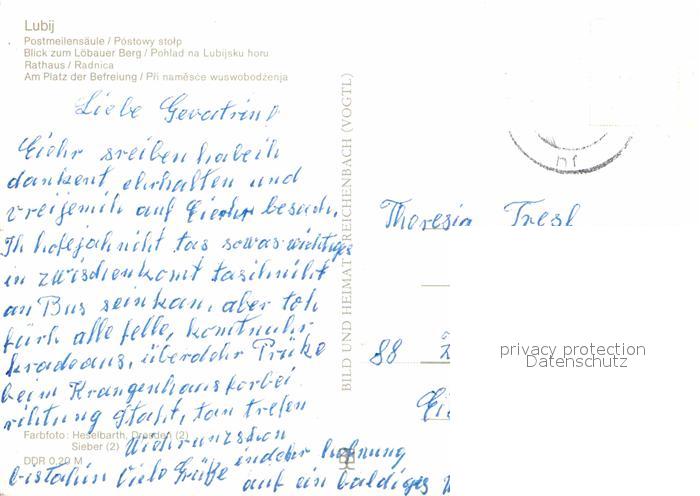 Lubij
Postmeilensäule / Póstowy stołp
Blick zum Löbauer Berg / Pohlad na Lubijsku horu
Rathaus / Radnica
Am Platz der Befreiung / Při naměsće wuswobodźenja
Liebe Gevatrin!
Eiehr sreiben habeih
dankent ehrhalten und
vreijemich auf Eierhr besuch,
Ih hofejah nicht tas sowas wichtiges
in zwischenkomt tasihniht
an Bus sein kan, aber toh
fürh alle felle, komt nuhr
kradeaus, überdehr Prüke
beim Krangenhaus forbei
rihtung Staht, tan trefen
Wiehr uns schon
in dehr hofnung
bistahin Viele Grüße auf ein baldiges
Farbfoto: Heselbarth, Dresden (2)
Sieber (2)
DDR 0,20 M
BILD UND HEIMAT REICHENBACH (VOGTL)
Theresia Tresl
88
privacy protection
Datenschutz